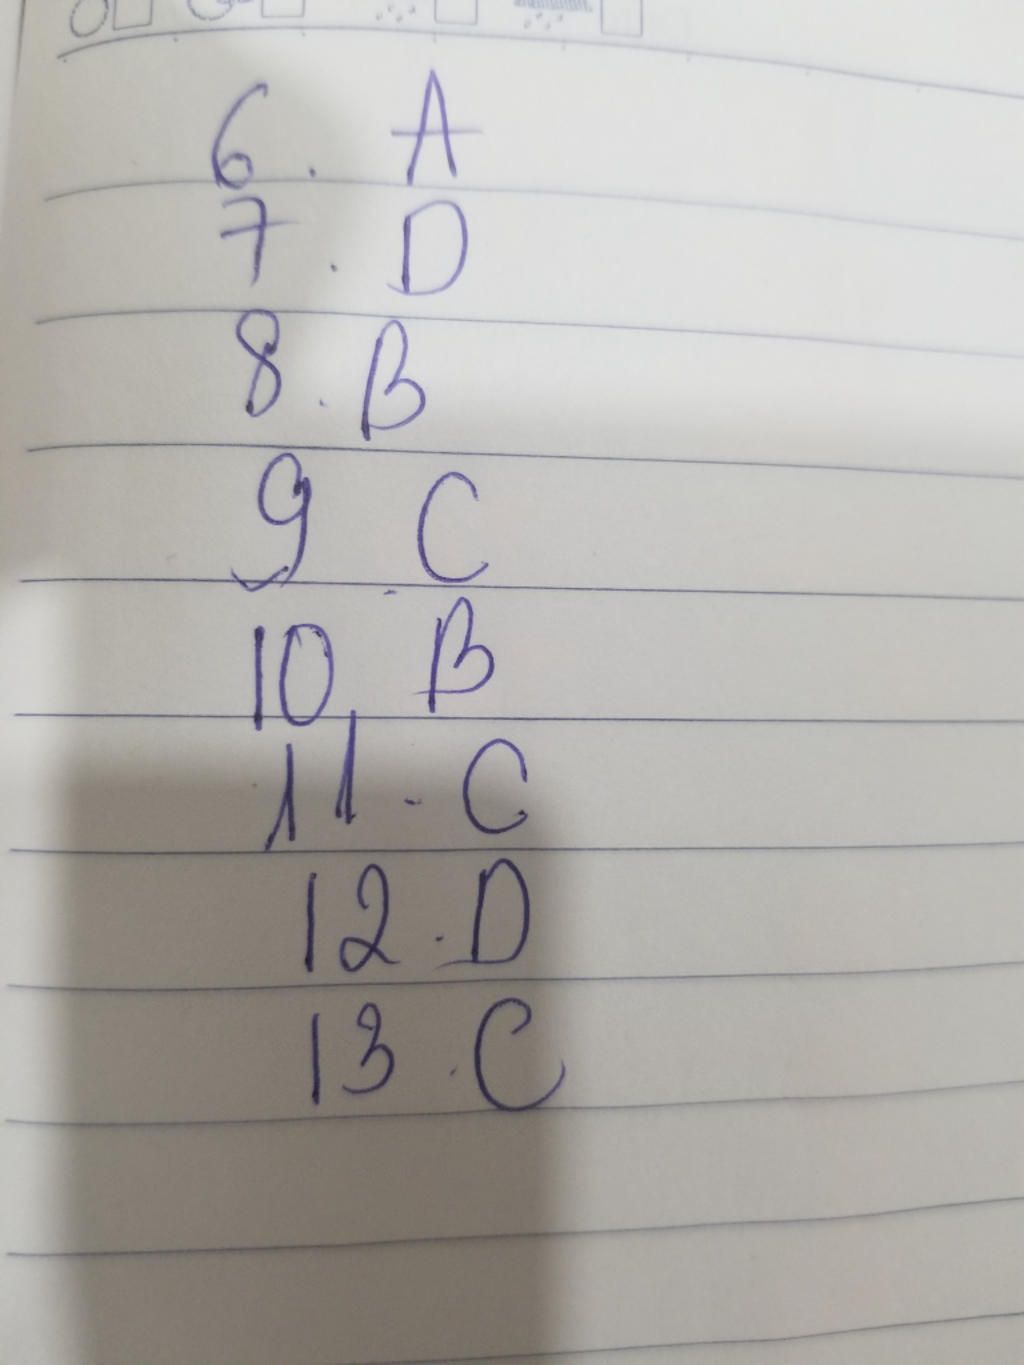 6. A
7. D
8. B
9. C
10. B
11. C
12. D
13. C